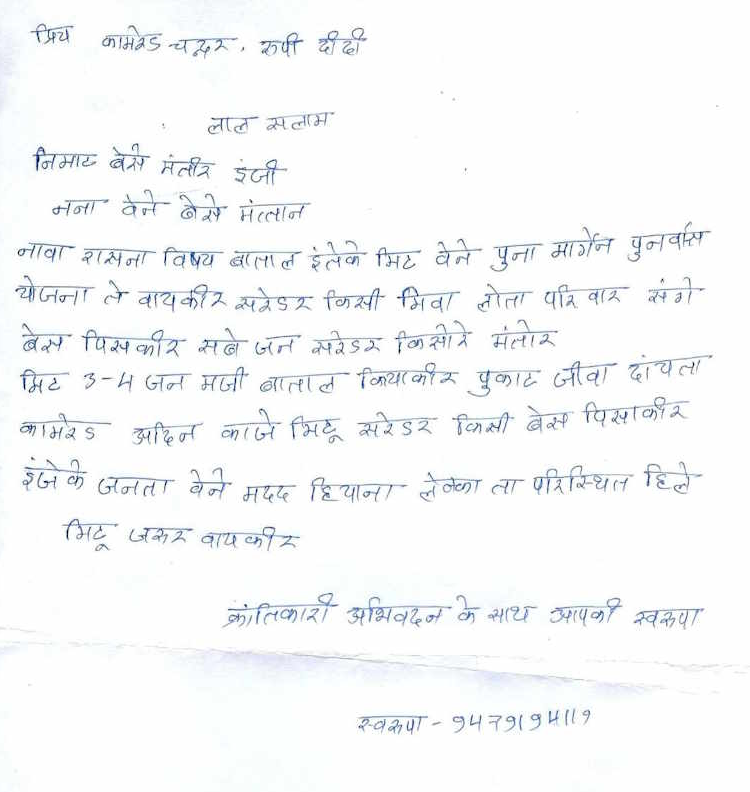 प्रिय कामरेड चन्दर, रुपी दीदी
लाल सलाम
निमाट बेसे मंतीर इंजी
नना वेने बेसे मंत्तान
नावा रासना विषय बाताल इंतेके मिट वेने पुना मार्गेन पुनर्वास
योजना ते वायकीर सरेंडर किसी मिवा लोता परिवार संगे
बेस पिसकीर सबे जन सरेंडर किसोरे मंतोर
मिट 3-4 जन मजी बाताल कियाकीर पुकाट जीवा दांयता
कामरेड अदिन काजे मिट्टू सरेडर किसी बेस पिसाकीर
इंजेके जनता वेने मदद हियाना लेक्का ता परिस्थित हिले
मिट्टू जरुर वायकीर
क्रांतिकारी अभिवदन के साथ आपकी स्वरूपा
स्वरूपा - 9479194119